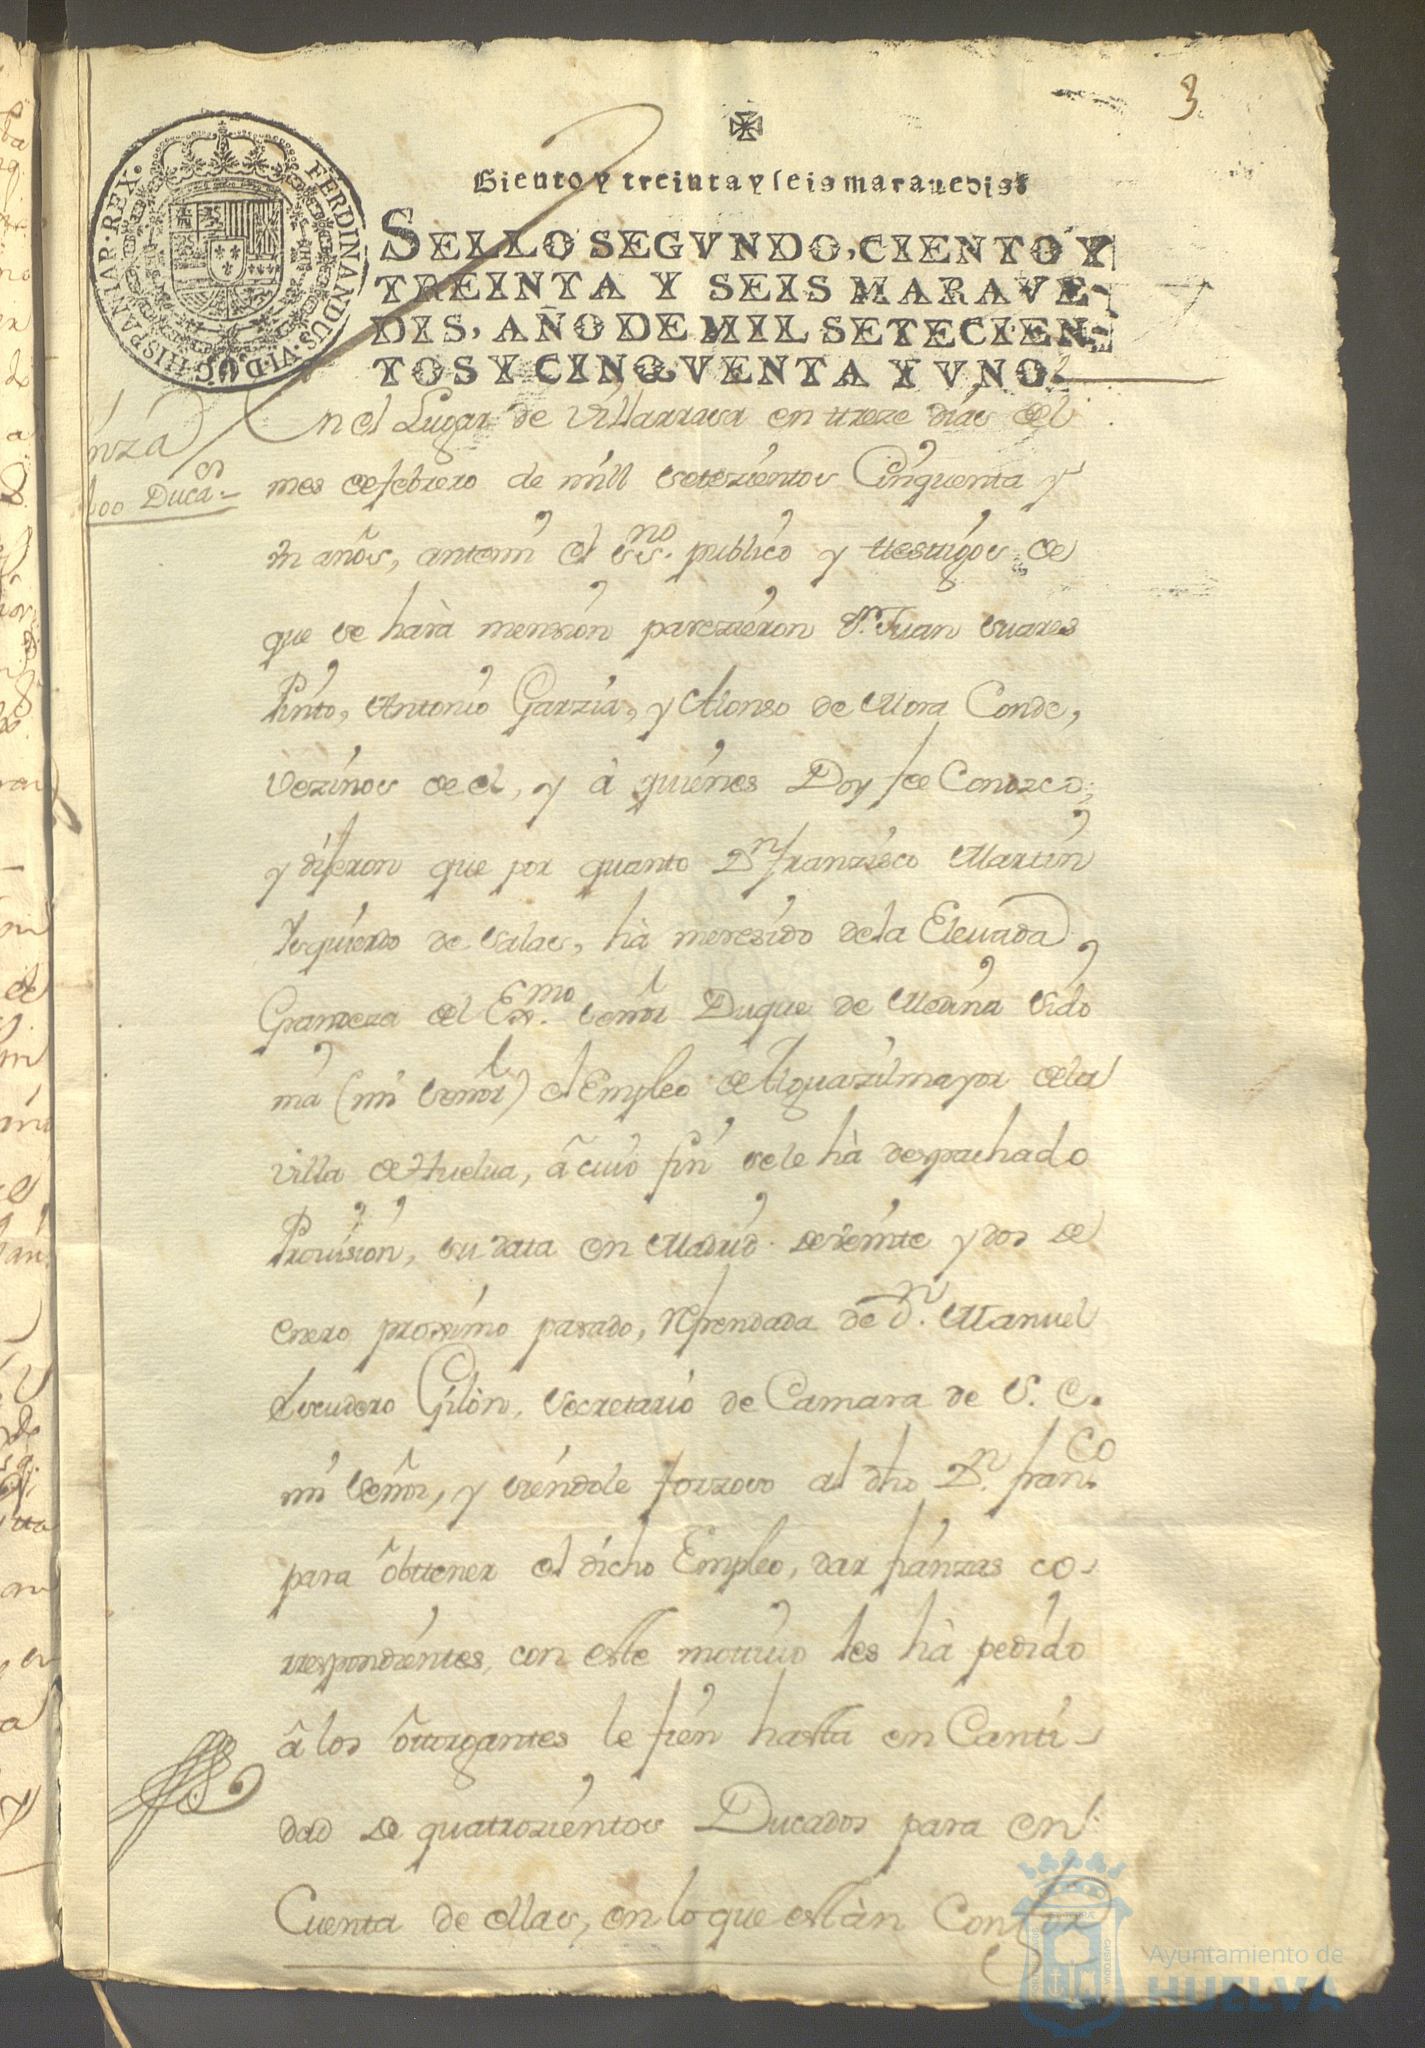 3
Ciento y treinta y seis maravedis.
FERDINANDUS·VI·D·G·HISPANIAR·REX·
SELLO SEGVNDO, CIENTO Y
TREINTA Y SEIS MARAVE-
DIS, AÑO DE MIL SETECIEN-
TOS Y CINQVENTA Y VNO.
nza
400 Ducas.
En el Lugar de Villarrasa en treze dias del
mes de febrero de mill setezientos Cinquenta y
un años, antemi el ssno. publico y testigos de
que se harà mension parezieron Dn. Juan suares
Pinto, Antonio Garzia, y Alonso de Mora Conde,
vezinos de el, y à quienes Doy fee Conozco,
y dijeron que por quanto Dn. franzisco Martin
Isquierdo de salas, hà meresido de la Elevada
Grandeza del Exmo. señor Duque de Medina sido
nia (mi señor) el Empleo de Alguazil mayor de la
villa de Huelva, à cuio fin se le hà despachado
Provision, su data en Madrid de veinte y dos de
enero proximo pasado, refrendada de dn. Manuel
Escudero Gilòn, secretario de Camara de S. E.
mi señor, y siendole forzoso al dho Dn. franco
para obttener el dicho Empleo, dar fianzas co-
rrespondientes, con este motivo les hà pedido
à los ôttorgantes le fien hasta en Canti-
dad de quatrozientos Ducados para en
Cuenta de ellas, en lo que estàn Confor
Ayuntamiento de
HUELVA